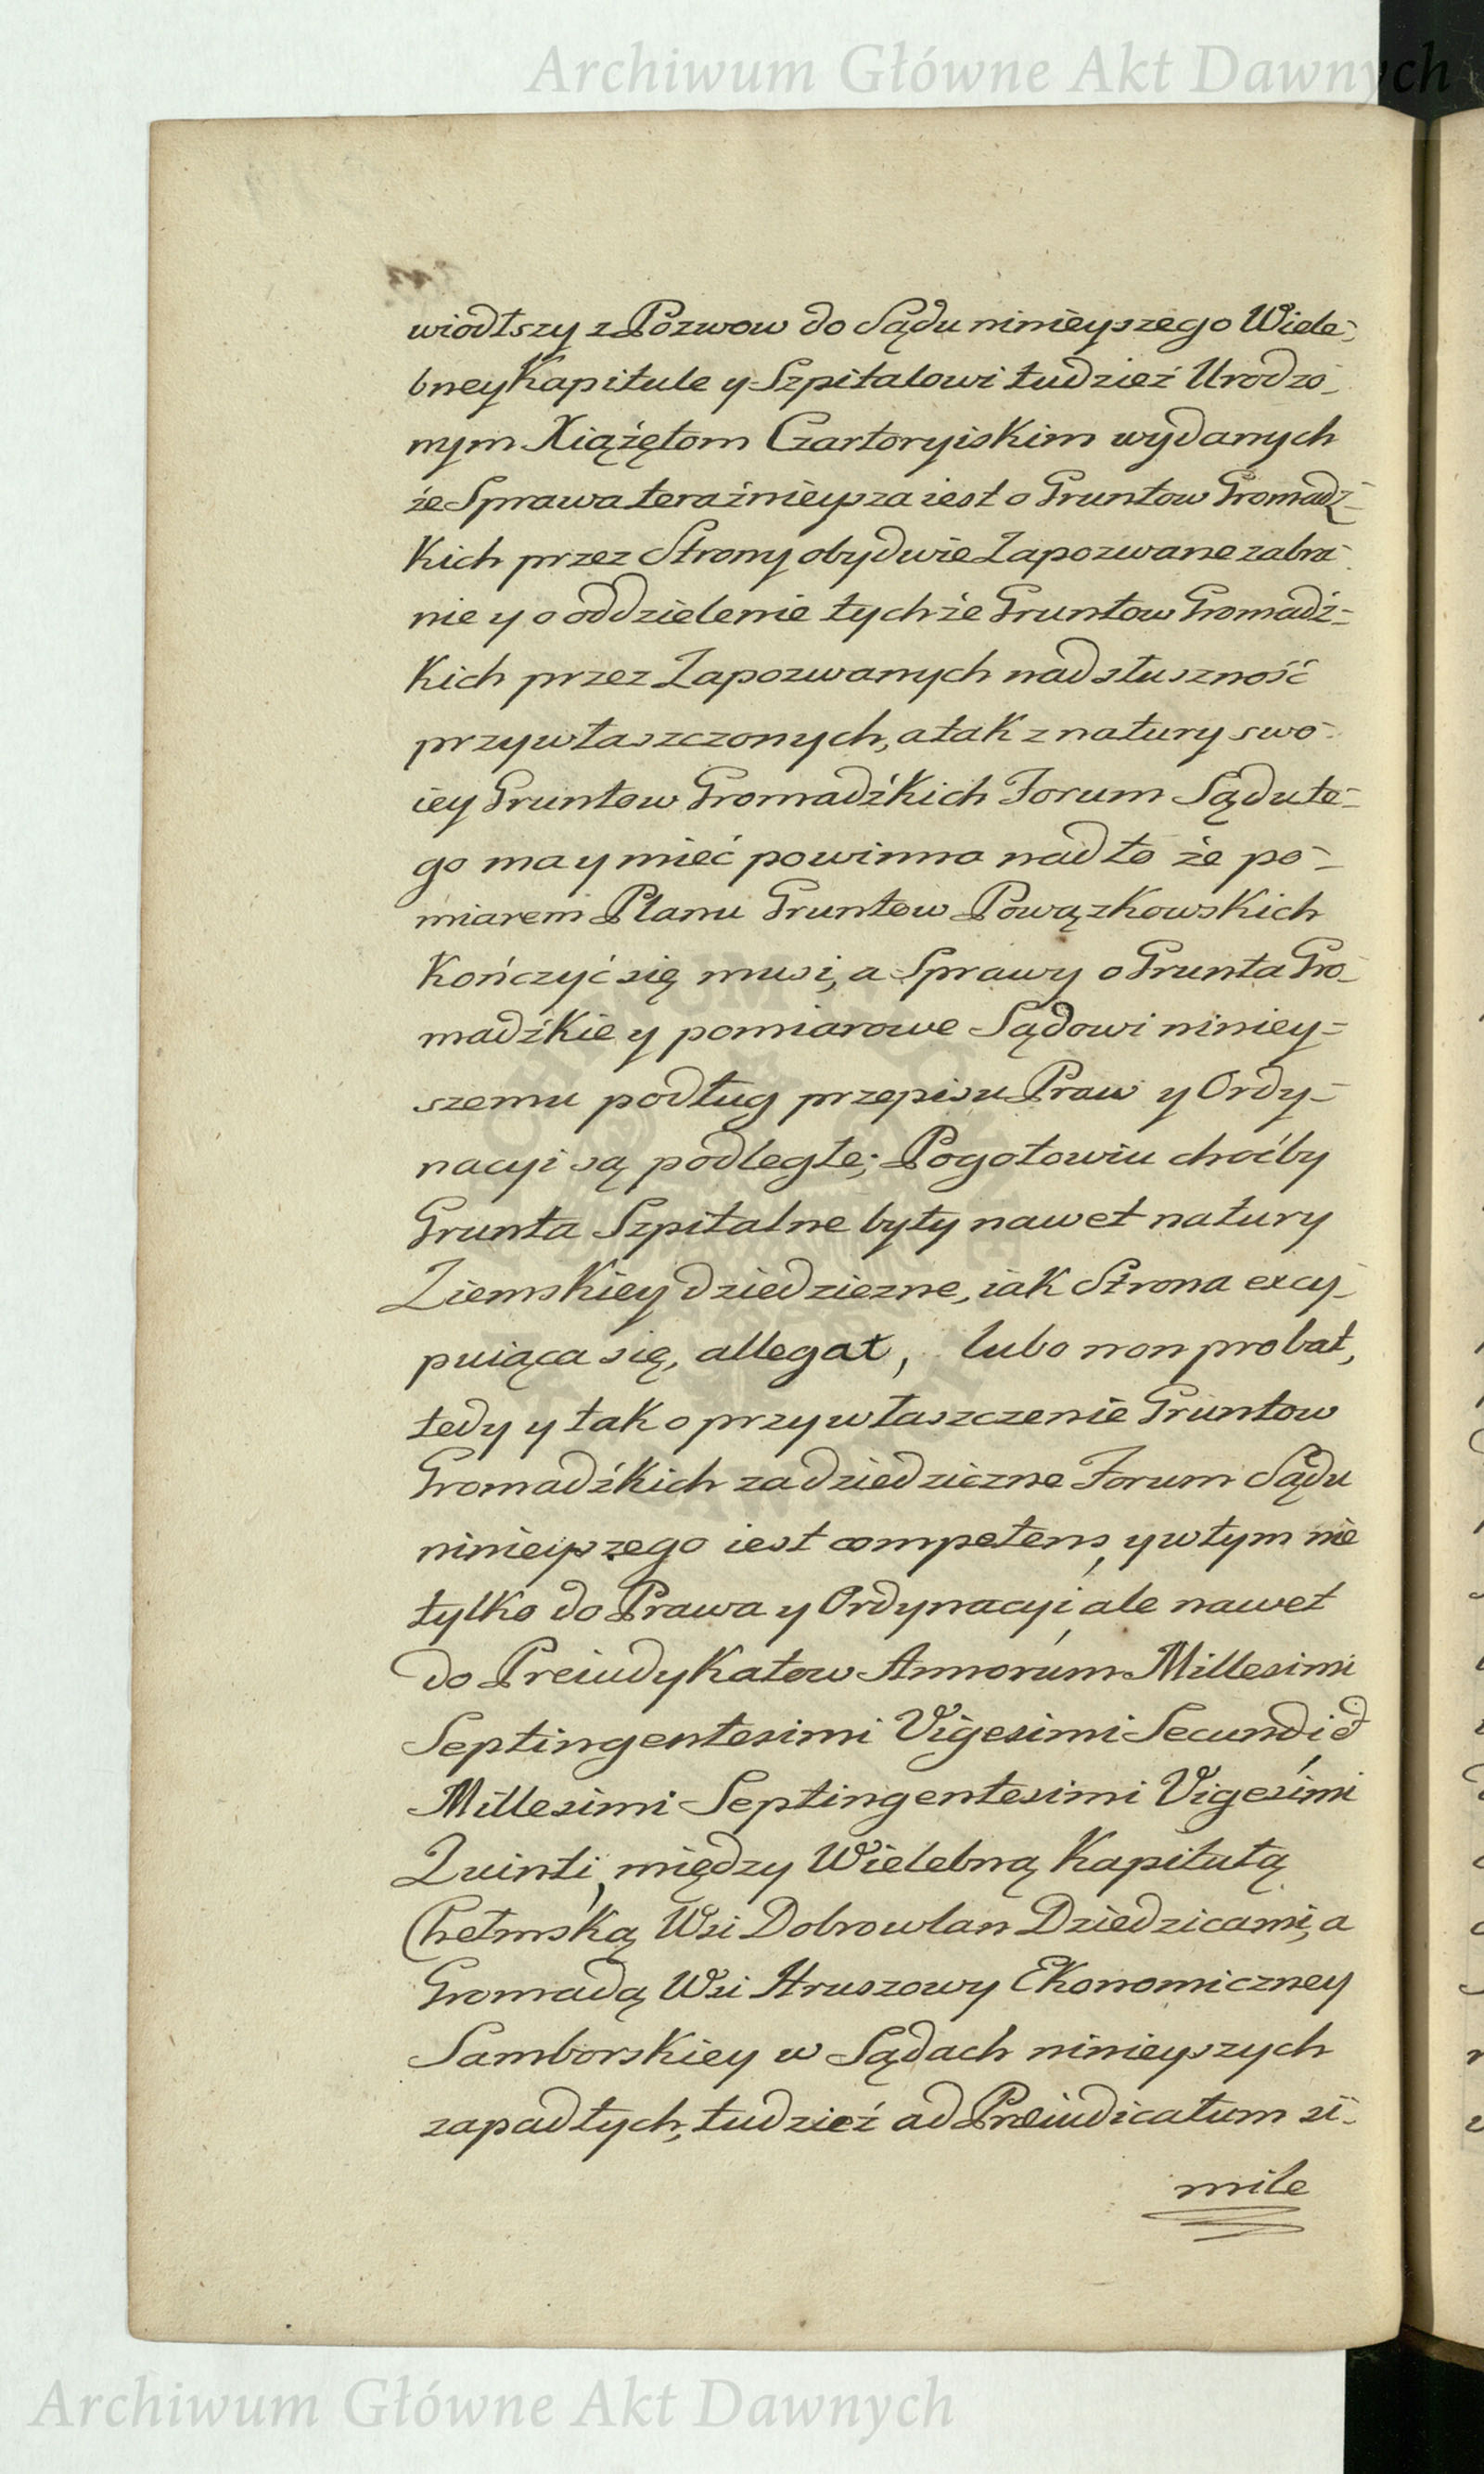 Archiwum Główne Akt Dawnych
wiodłszy z Pozwow do Sądu ninieyszego Wiele-
bney Kapitule y Szpitalowi tudzież Urodzo-
nym Xiążętom Czartoryiskim wydanych
że Sprawa teraźnieysza iest o Gruntow Gromadz-
kich przez Strony obydwie Zapozwane zabra-
nie y o oddzielenie tychże Gruntow Gromadź-
kich przez Zapozwanych nad słuszność
przywłaszczonych, a tak z natury swo-
iey Gruntow Gromadźkich Forum Sądu te-
go ma y mieć powinna nad to że po-
miarem Planu Gruntow Powązkowskich
kończyć się musi, a Sprawy o Grunta Gro-
madźkie y pomiarowe Sądowi niniey-
szemu podług przepisu Praw y Ordy-
nacyi są podległe; Pogotowiu choćby
Grunta Szpitalne były nawet natury
Ziemskiey dziedziczne, iak Strona excy-
puiąca się, allegat, lubo non probat,
tedy y tak o przywłaszczenie Gruntow
Gromadźkich za dziedziczne Forum Sądu
ninieyszego iest competens, y w tym nie
tylko do Prawa y Ordynacyi, ale nawet
do Preiudykatow Annorum Millesimi
Septingentesimi Vigesimi Secundi et
Millesimi Septingentesimi Vigesimi
Quinti, między Wielebną Kapitułą
Chełmską Wsi Dobrowlan Dziedzicami, a
Gromadą Wsi Hruszowy Ekonomiczney
Samborskiey w Sądach ninieyszych
zapadłych, tudzież ad Præiudicatum si-
mile
Archiwum Główne Akt Dawnych